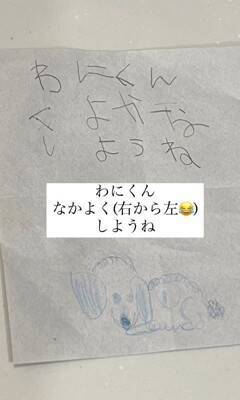 わにくん
くよかな
しようね
わにくん
なかよく(右から左😂)
しようね